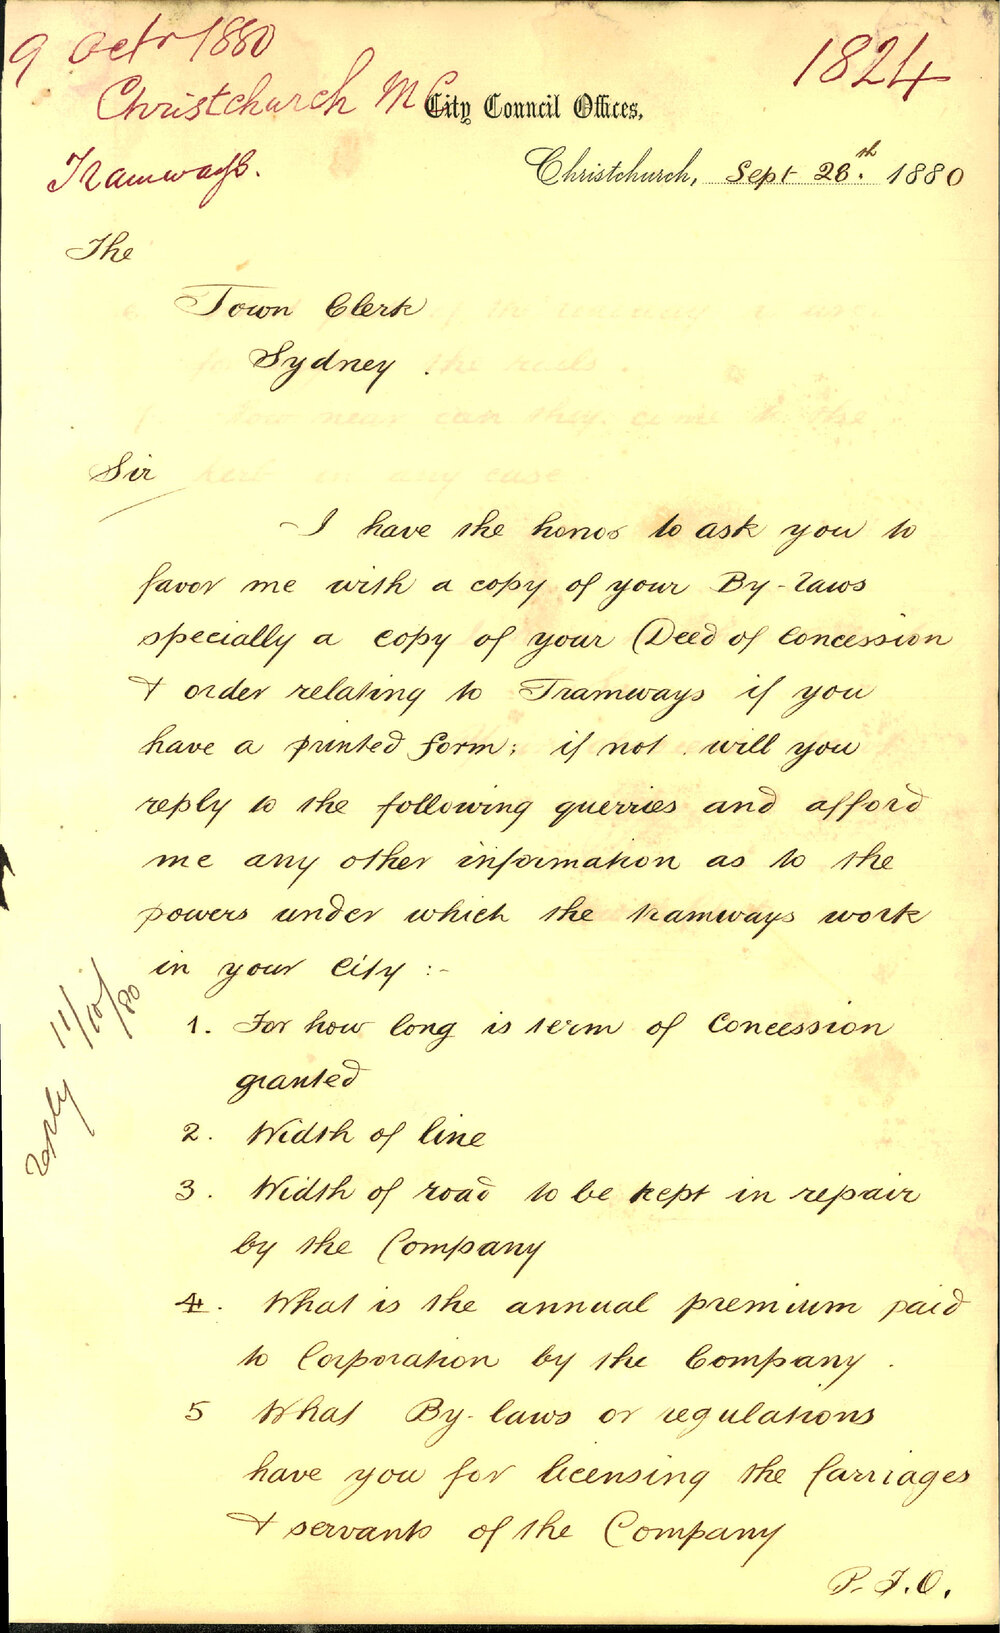 9 Octr 1880
1824
Christchurch M C
City Council Offices,
Tramways.
Christchurch, Sept 28.th 1880
The
Town Clerk
Sydney.
Sir
I have the honor to ask you to
favor me with a copy of your By-laws
specially a copy of your Deed of Concession
& order relating to Tramways if you
have a printed form; if not will you
reply to the following querries and afford
me any other information as to the
powers under which the tramways work
in your City :-
1. For how long is term of Concession
granted
2. Width of line
3. Width of road to be kept in repair
by the Company
4. What is the annual premium paid
to Corporation by the Company.
5 What By-laws or regulations
have you for licensing the Carriages
& servants of the Company
P.T.O.
reply 11/10/80